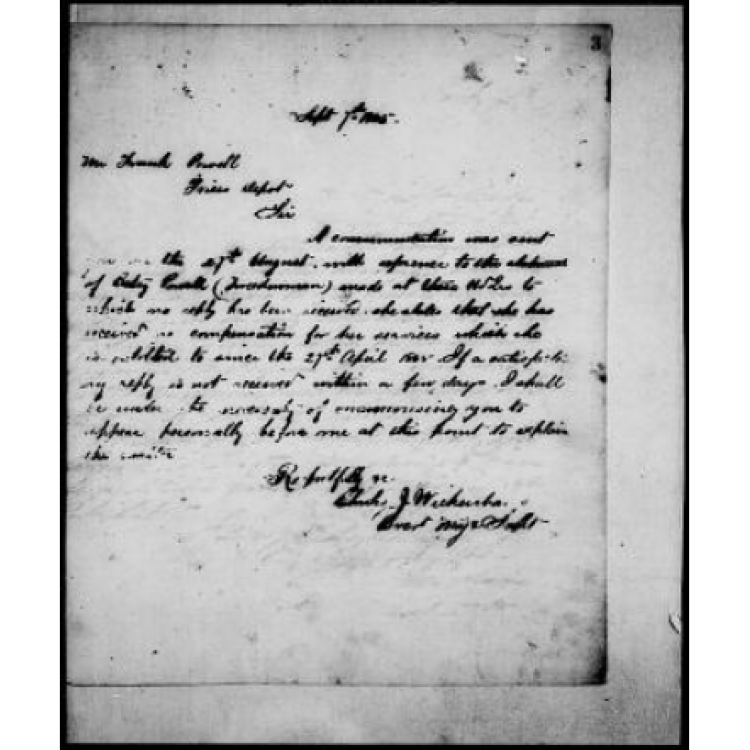 3
Sept 7th 1865.
Mr Frank Powell
Prices Depot
Sir
A communication was sent
you on the 27th August, with reference to the statement
of Betsy Powell (Freedwoman) made at these Hd Qrs to
which no reply has been received. she states that she has
received no compensation for her services which she
is entitled to since the 27th April 1865 If a satisfacto
ry reply is not received within a few days I shall
be under the necessity of summonsing you to
appear personally before me at this point to explain
the
Respectfully &c
J. Wickersham
Brevt Maj & Supt